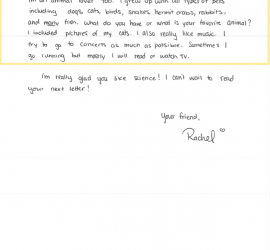 I'm an animal lover too. I grew up with all types of pets
including dogs, cats, birds, snakes, hermit crabs, rabbits,
and many fish. What do you have or what is your favorite animal?
I included pictures of my cats. I also really like music. I
try to go to concerts as much as possible. Sometimes I
go running but mostly I will read or watch TV.
I'm really glad you like science! I can't wait to read
your next letter!
Your friend,
Rachel